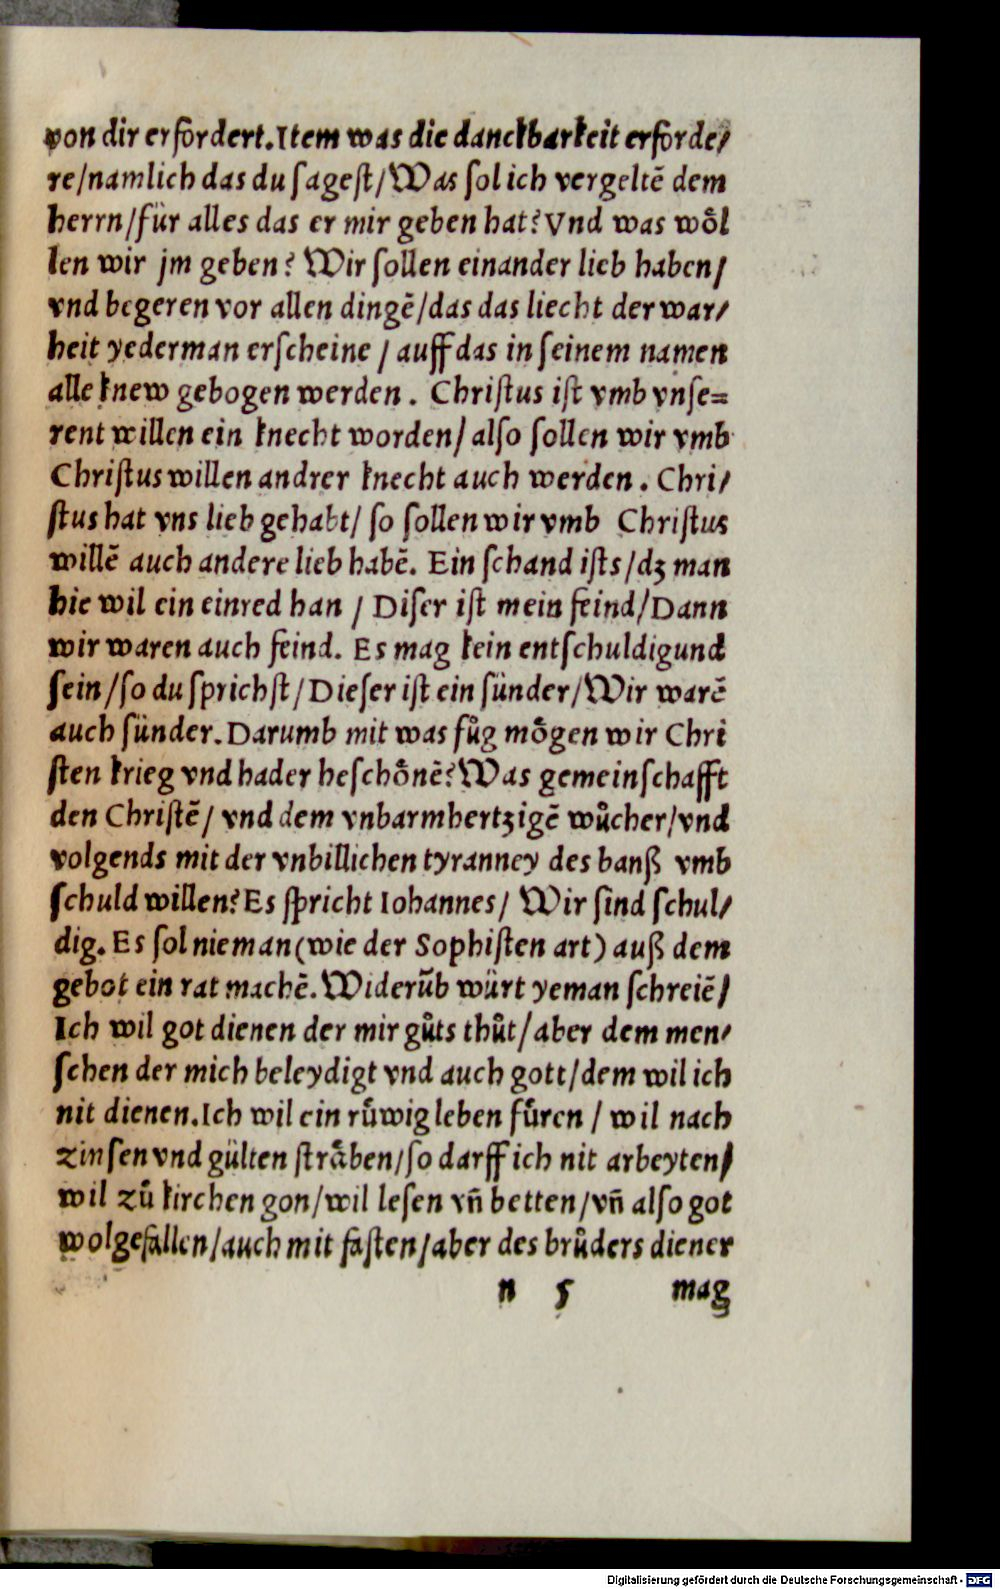 von dir erfordert. Item was die danckbarkeit erforde/
re/namlich das du sagest/Was sol ich vergeltē dem
herrn/für alles das er mir geben hat? Vnd was woͤl
len wir jm geben? Wir sollen einander lieb haben/
vnd begeren vor allen dingē/das das liecht der war/
heit yederman erscheine / auff das in seinem namen
alle knew gebogen werden . Christus ist vmb vnse=
rent willen ein knecht worden/ also sollen wir vmb
Christus willen andrer knecht auch werden . Chri/
stus hat vns lieb gehabt/ so sollen wir vmb Christus
willē auch andere lieb habē. Ein schand ists/dz man
hie wil ein einred han / Diser ist mein feind/Dann
wir waren auch feind. Es mag kein entschuldigund
sein/so du sprichst/Dieser ist ein sünder/Wir warē
auch sünder. Darumb mit was fuͦg moͤgen wir Chri
sten krieg vnd hader beschoͤnē? Was gemeinschafft
den Christē/ vnd dem vnbarmhertzigē wuͦcher/vnd
volgends mit der vnbillichen tyranney des banß vmb
schuld willen? Es spricht Iohannes/ Wir sind schul/
dig. Es sol nieman (wie der Sophisten art) auß dem
gebot ein rat machē. Widerūb würt yeman schreiē/
Ich wil got dienen der mir guͦts thuͦt/aber dem men/
schen der mich beleydigt vnd auch gott/dem wil ich
nit dienen. Ich wil ein ruͤwig leben fuͤren / wil nach
zinsen vnd gülten straͤben/so darff ich nit arbeyten/
wil zuͦ kirchen gon/wil lesen vn̄ betten/vn̄ also got
wolgefallen/auch mit fasten/aber des bruͦders diener
n 5 mag
Digitalisierung gefördert durch die Deutsche Forschungsgemeinschaft - DFG